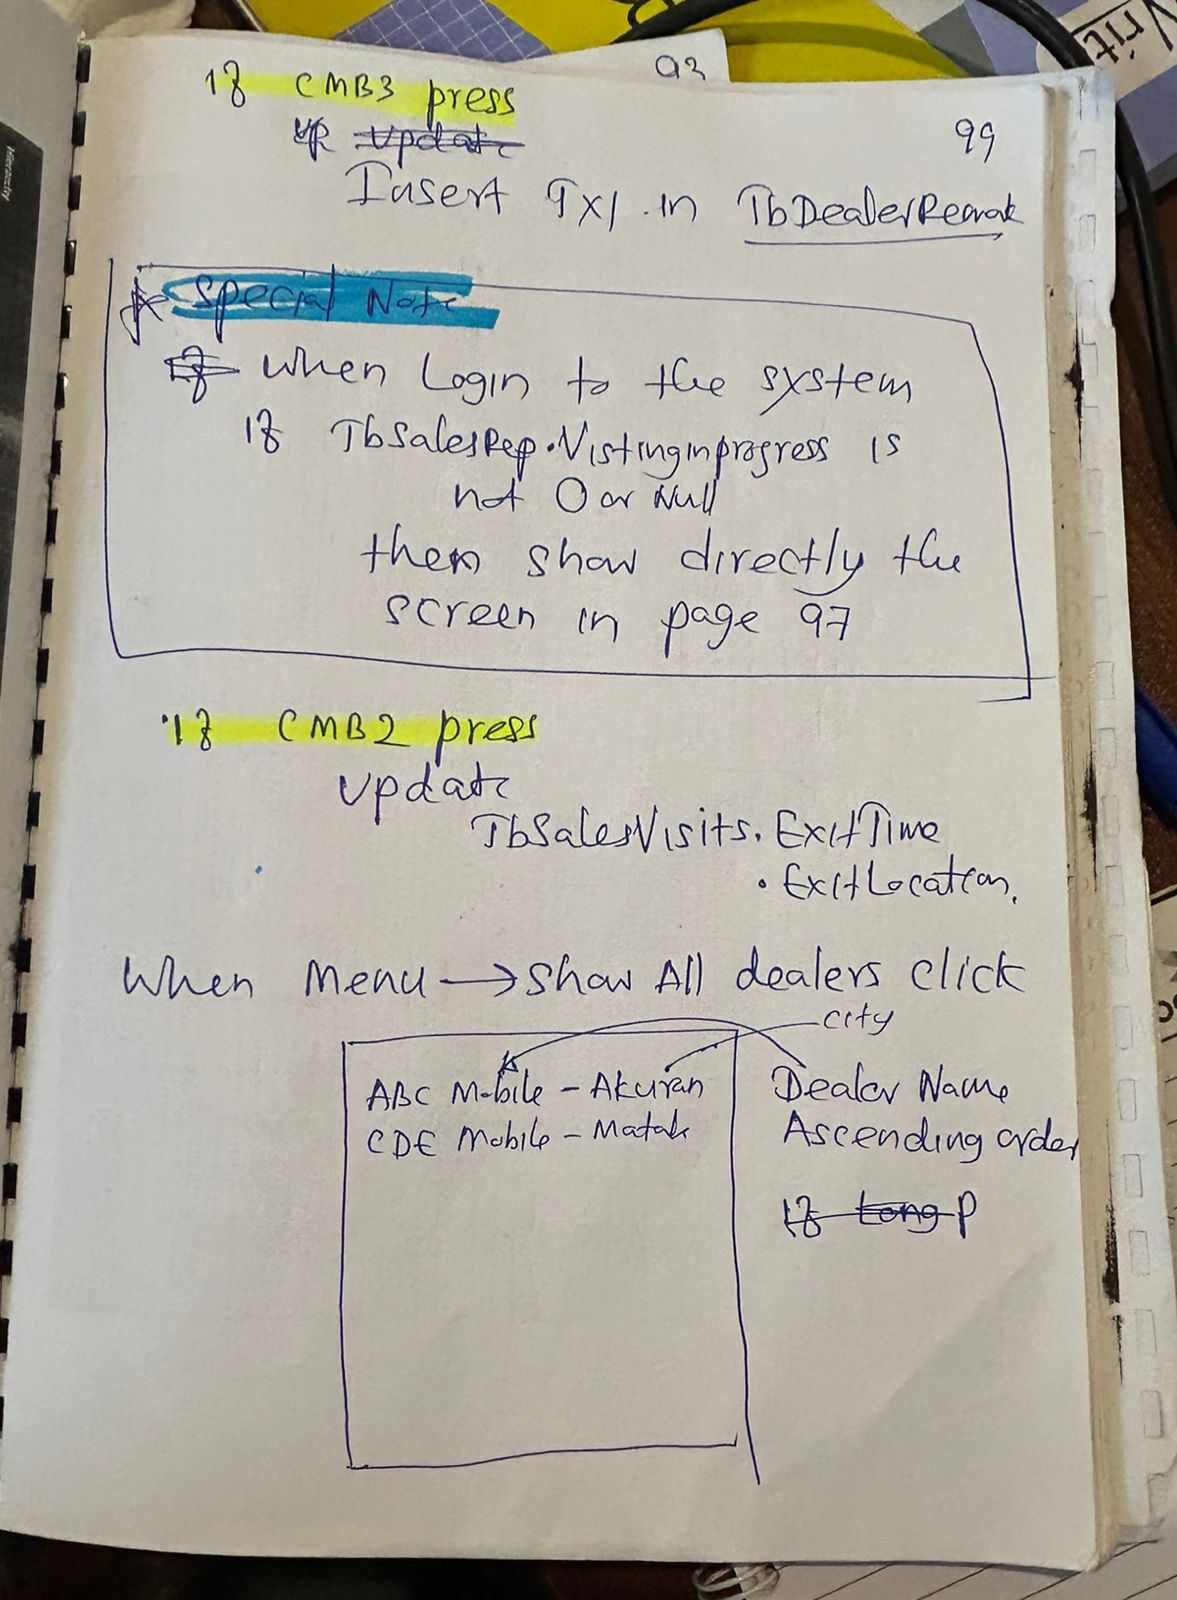 93
If CMB3 press
99
Insert Tx1 in TbDealerRemak
Special Note
When Login to the system
If TbSalesRep.Vistinginprogress is
not 0 or Null
then show directly the
screen in page 97
If CMB2 press
Update
TbSalesVisits. ExitTime
. ExitLocation.
When Menu → Show All dealers click
city
ABC Mobile - Akuran
Dealer Name
CDE Mobile - Matale
Ascending order
If Long P
Hierarchy
Writ